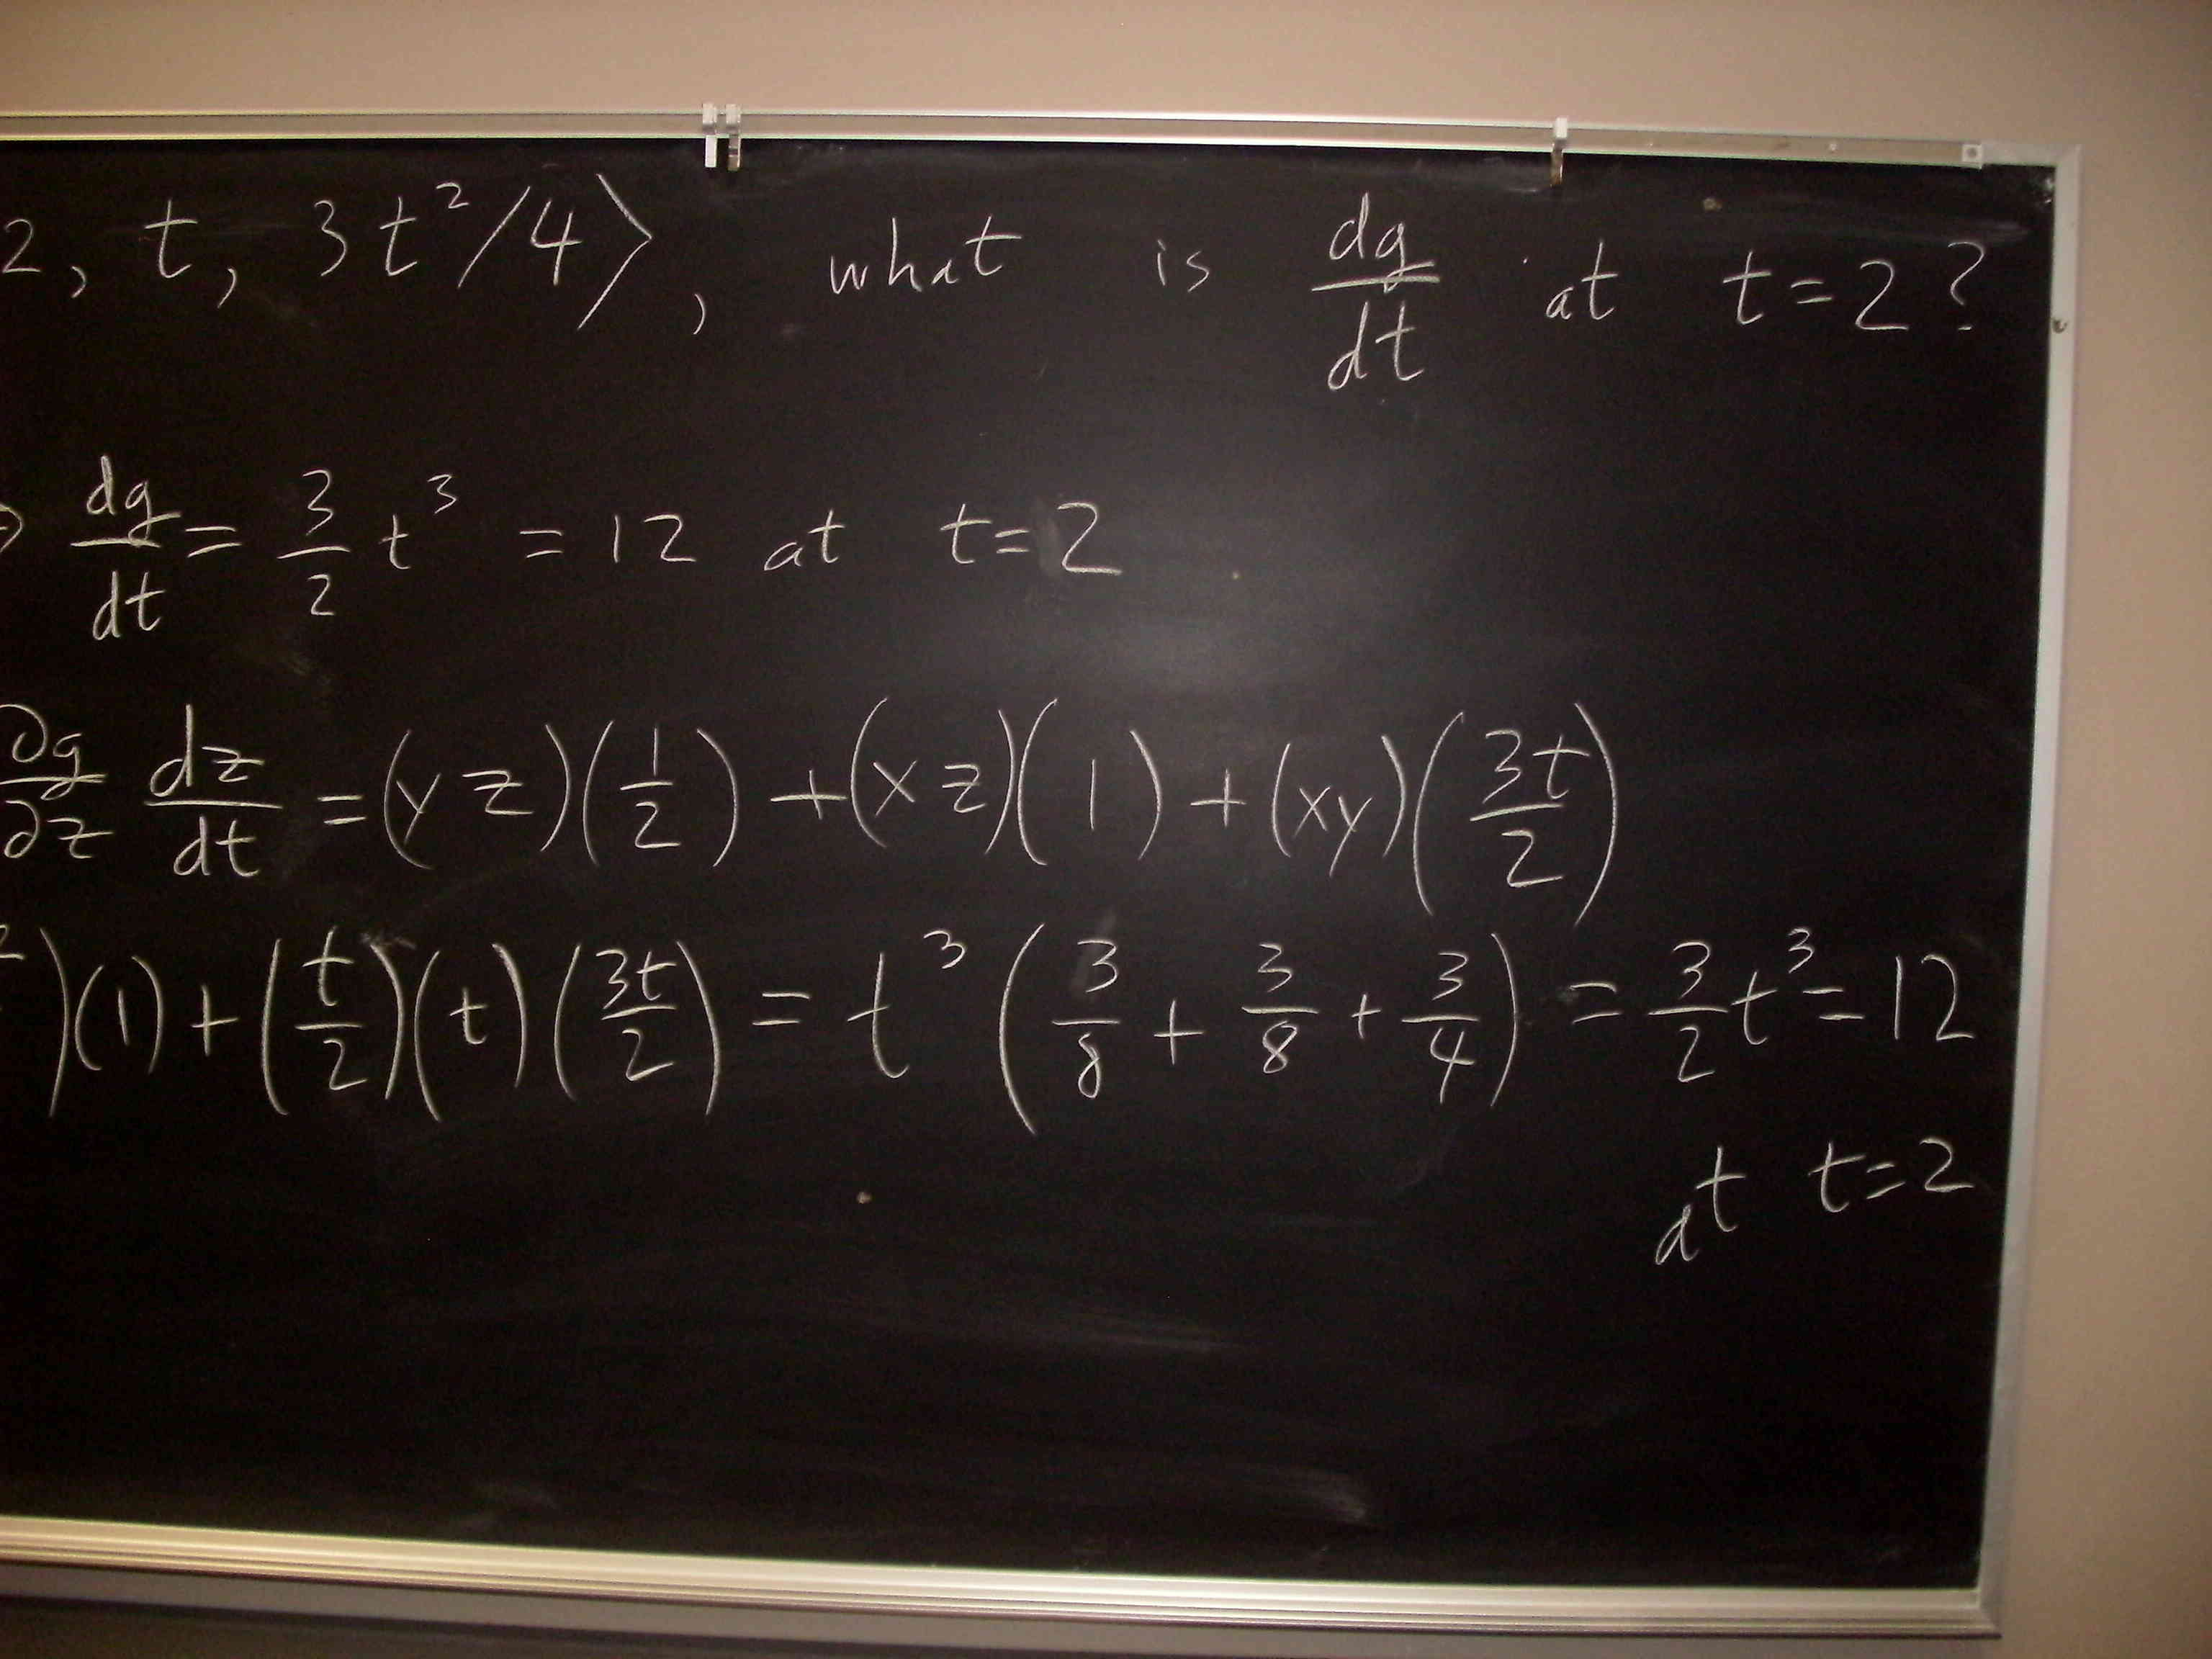 2, t, 3t²/4⟩, what is dg/dt at t=2?
dg/dt = 3/2 t³ = 12 at t=2
∂g/∂z dz/dt = (yz)(1/2) + (xz)(1) + (xy)(3t/2)
)(1) + (t/2)(t)(3t/2) = t³(3/8 + 3/8 + 3/4) = 3/2 t³ = 12
at t=2